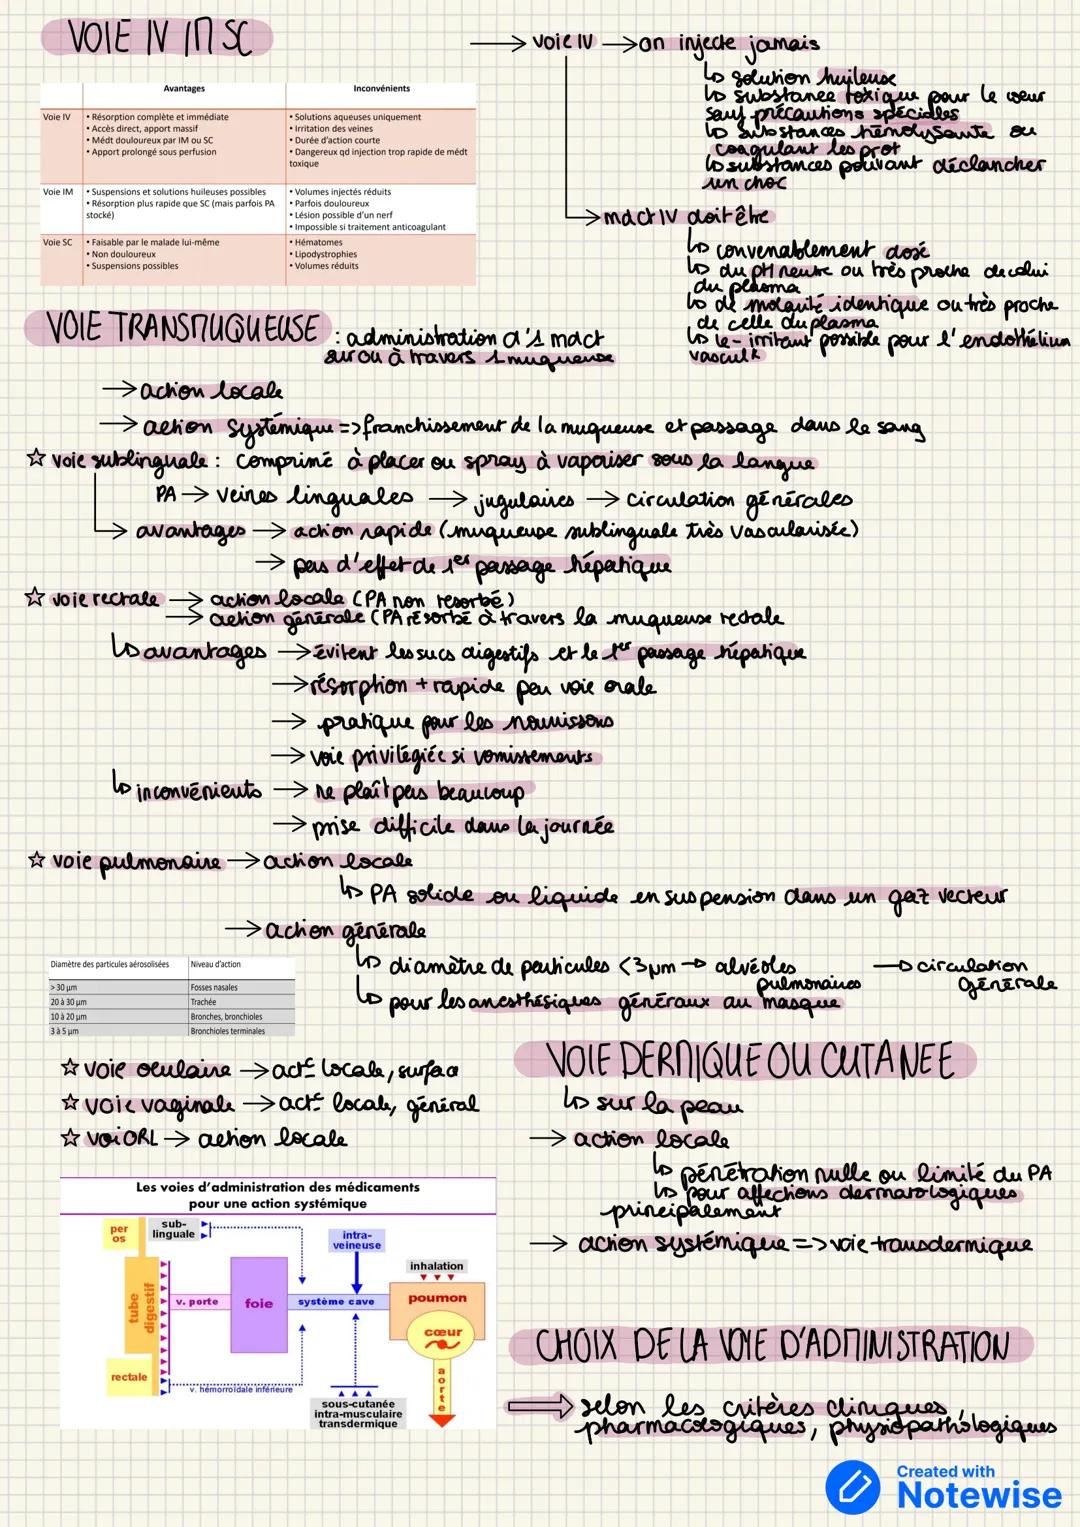 VOIE IV IM SC
Avantages Inconvénients
Voie IV
• Résorption complète et immédiate
• Accès direct, apport massif
• Médt douloureux par IM ou SC
• Apport prolongé sous perfusion
• Solutions aqueuses uniquement
• Irritation des veines
• Durée d'action courte
• Dangereux qd injection trop rapide de médt
toxique
Voie IM
• Suspensions et solutions huileuses possibles
• Résorption plus rapide que SC (mais parfois PA
stocké)
• Volumes injectés réduits
• Parfois douloureux
• Lésion possible d'un nerf
• Impossible si traitement anticoagulant
Voie SC
• Faisable par le malade lui-même
• Non douloureux
• Suspensions possibles
• Hématomes
• Lipodystrophies
• Volumes réduits
→ voie IV → on injecte jamais
↳ solution huileuse
↳ substance toxique pour le coeur
sauf précautions spéciales
↳ substances hémolysante ou
coagulant les prot
↳ substances pouvant déclancher
un choc
→ mdct IV doit être
↳ convenablement dosé
↳ du pH neutre ou très proche de celui
du plasma
↳ de molarité identique ou très proche
de celle du plasma
↳ le - irritant possible pour l'endothélium
vascul
VOIE TRANSMUQUEUSE : administration d'1 mdct
sur ou à travers 1 muqueuse
→ action locale
→ action systémique => franchissement de la muqueuse et passage dans le sang
☆ voie sublinguale : comprimé à placer ou spray à vaporiser sous la langue
PA → veines linguales → jugulaires → circulation générales
→ avantages → action rapide (muqueuse sublinguale très vascularisée)
→ pas d'effet de 1er passage hépatique
☆ voie rectale → action locale (PA non resorbé)
→ action générale (PA résorbé à travers la muqueuse rectale
↳ avantages → évitent les sucs digestifs et le 1er passage hépatique
→ résorption + rapide par voie orale
→ pratique pour les nourrissons
→ voie privilégiée si vomissements
↳ inconvénients → ne plaît pas beaucoup
→ prise difficile dans la journée
☆ voie pulmonaire → action locale
↳ PA solide ou liquide en suspension dans un gaz vecteur
→ action générale
↳ diamètre de particules <3µm → alvéoles
pulmonaires
→ circulation
générale
↳ pour les anesthésiques généraux au masque
Diamètre des particules aérosolisées Niveau d'action
> 30 µm Fosses nasales
20 à 30 µm Trachée
10 à 20 µm Bronches, bronchioles
3 à 5 µm Bronchioles terminales
☆ voie oculaire → act° locale, surface
☆ voie vaginale → act° locale, général
☆ voi ORL → action locale
VOIE DERMIQUE OU CUTANEE
↳ sur la peau
→ action locale
↳ pénétration nulle ou limité du PA
↳ pour affections dermatologiques
principalement
→ action systémique => voie transdermique
Les voies d'administration des médicaments
pour une action systémique
per
os
sub-
linguale
intra-
veineuse
inhalation
tube
digestif
v. porte
foie
système cave
poumon
cœur
rectale
v. hémorroïdale inférieure
aorte
sous-cutanée
intra-musculaire
transdermique
CHOIX DE LA VOIE D'ADMINISTRATION
⇒ selon les critères cliniques,
pharmacologiques, physiopathologiques
Created with
Notewise